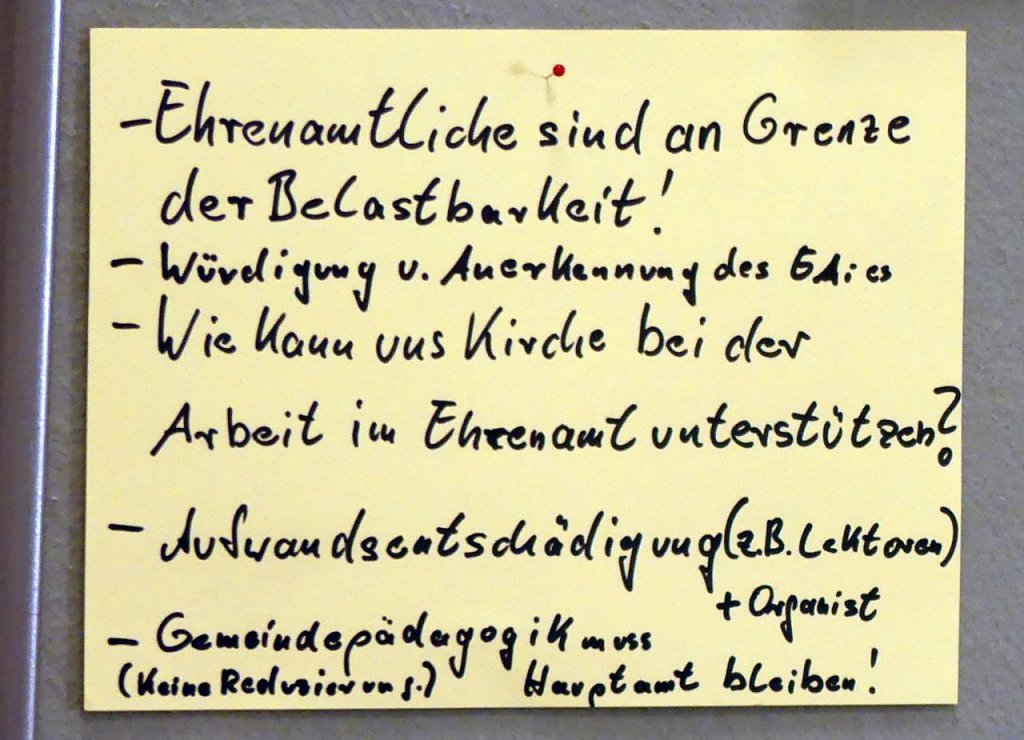 - Ehrenamtliche sind an Grenze
der Belastbarkeit!
- Würdigung u. Anerkennung des
- Wie kann uns Kirche bei der
Arbeit im Ehrenamt unterstützen?
- Aufwandsentschädigung (z.B. Lektoren)
+ Organist
- Gemeindepädagogik muss
(Keine Reduzierung.) Hauptamt bleiben!